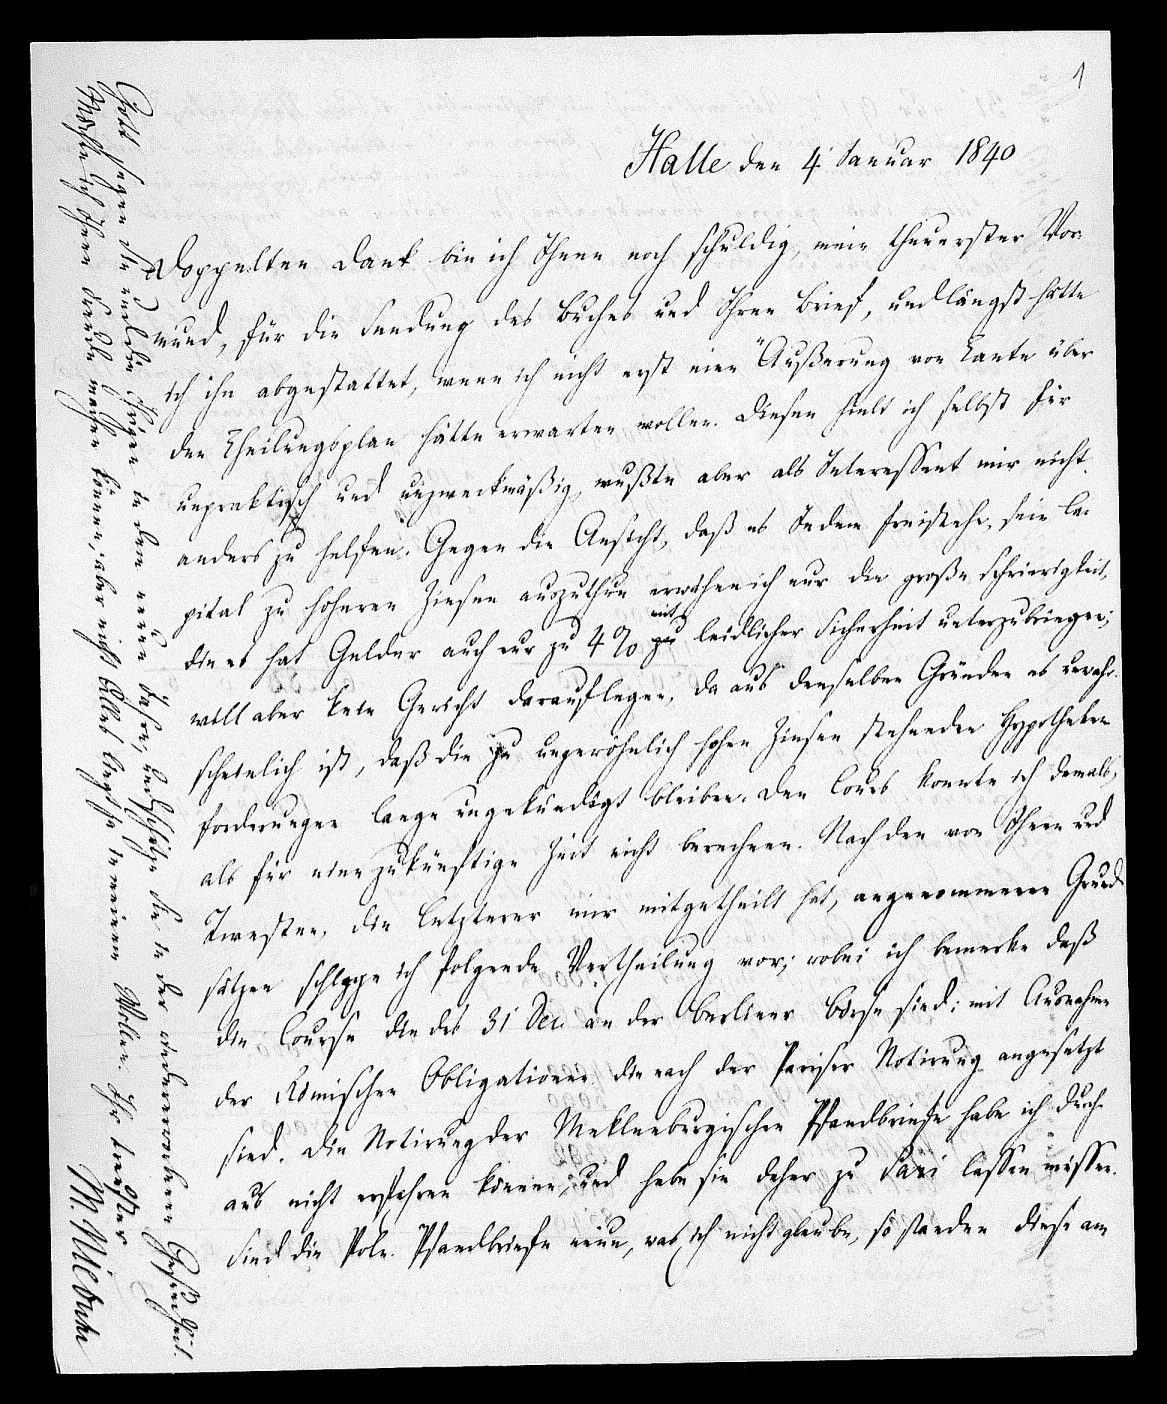 1
Halle den 4 Januar 1840
Doppelten Dank bin ich Ihnen noch schuldig, mein theuerster Vor-
mund, für die Sendung des Buches und Ihren Brief, und längst hätte
ich ihn abgestattet, wenn ich nicht erst eine Äußerung von Tante über
den Theilungsplan hätte erwarten wollen. Diesen hielt ich selbst für
unpraktisch und unzweckmäßig, wußte aber als Interessent mir nicht
anders zu helfen. Gegen die Ansicht, daß es Jedem freistehe, sein Ca-
pital zu höheren Zinsen auszuthun erwähne ich nur die große Schwierigkeit,
die es hat Gelder auch nur zu 4% mit leidlicher Sicherheit unterzubringen;
will aber kein Gewicht darauf legen, da aus denselben Gründen es unwahr-
scheinlich ist, daß die zu ungewöhnlich hohen Zinsen stehenden Hypotheken
forderungen lange ungekündigt bleiben. Den Cours konnte ich damals,
als für eine zukünftige Zeit nicht berechnen. Nach den von Ihnen und
Twesten, die letzterer mir mitgetheilt hat, angenommenen Grund
sätzen schlage ich folgende Vertheilung vor; wobei ich bemerke daß
die Course die des 31 Dec. an der berliner Börse sind; mit Ausnahme
der Römischen Obligationen die nach der Pariser Notirung angesetzt
sind. Die Notirung der Meklenburgischen Pfandbriefe habe ich durch-
aus nicht erfahren können, und habe sie daher zu Pari lassen müssen.
Sind die Poln. Pfandbriefe neue, was ich nicht glaube, so standen diese am
Gott segne Sie und die Ihrigen in dem neuen Jahre, und schütze Sie in der wiedererworbenen Gesundheit.
Möchte ich Ihnen Freude machen können, aber nicht Alles liegt ja in meinem Wollen. Ihr treuster
M. Niebuhr